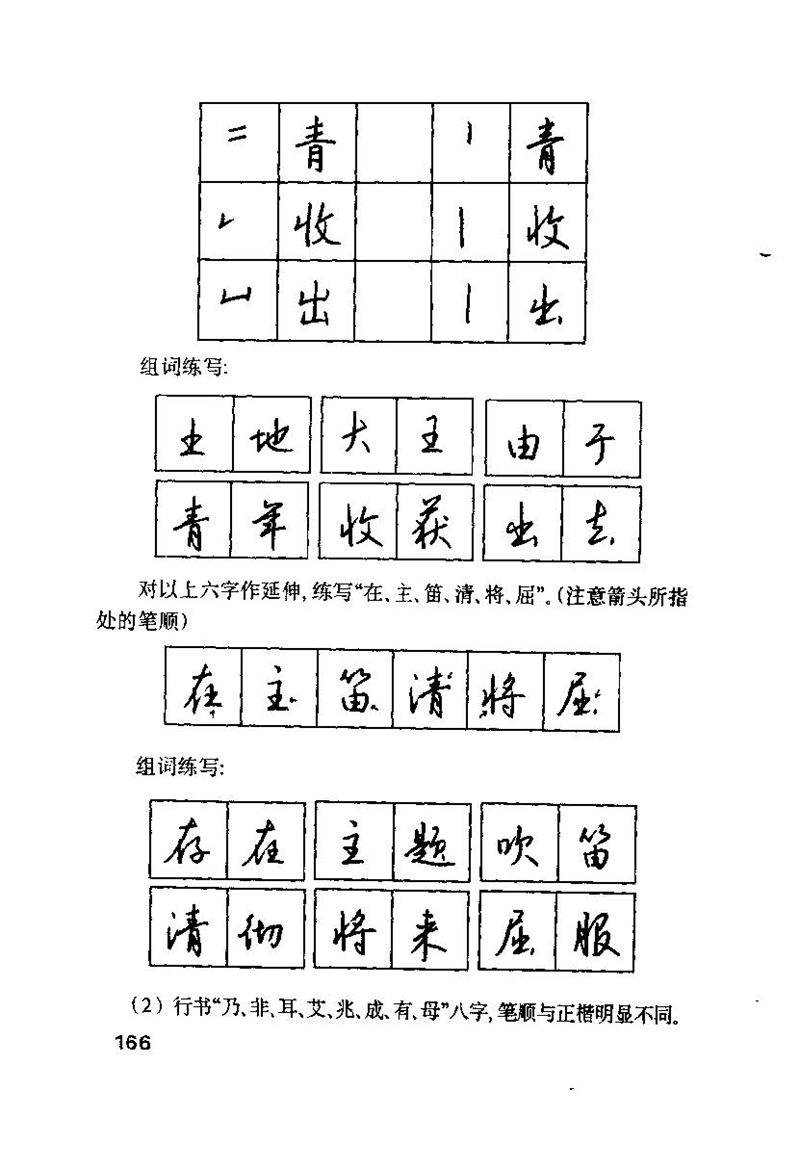 二 青 丨 青
收 丨 收
凵 出 丨 出
组词练写:
土地 大王 由于
青年 收获 出去
对以上六字作延伸,练写“在、主、笛、清、将、屈”。(注意箭头所指
处的笔顺)
在 主 笛 清 将 屈
组词练写:
存在 主题 吹笛
清彻 将来 屈服
(2) 行书“乃、非、耳、艾、兆、成、有、母”八字,笔顺与正楷明显不同。
166